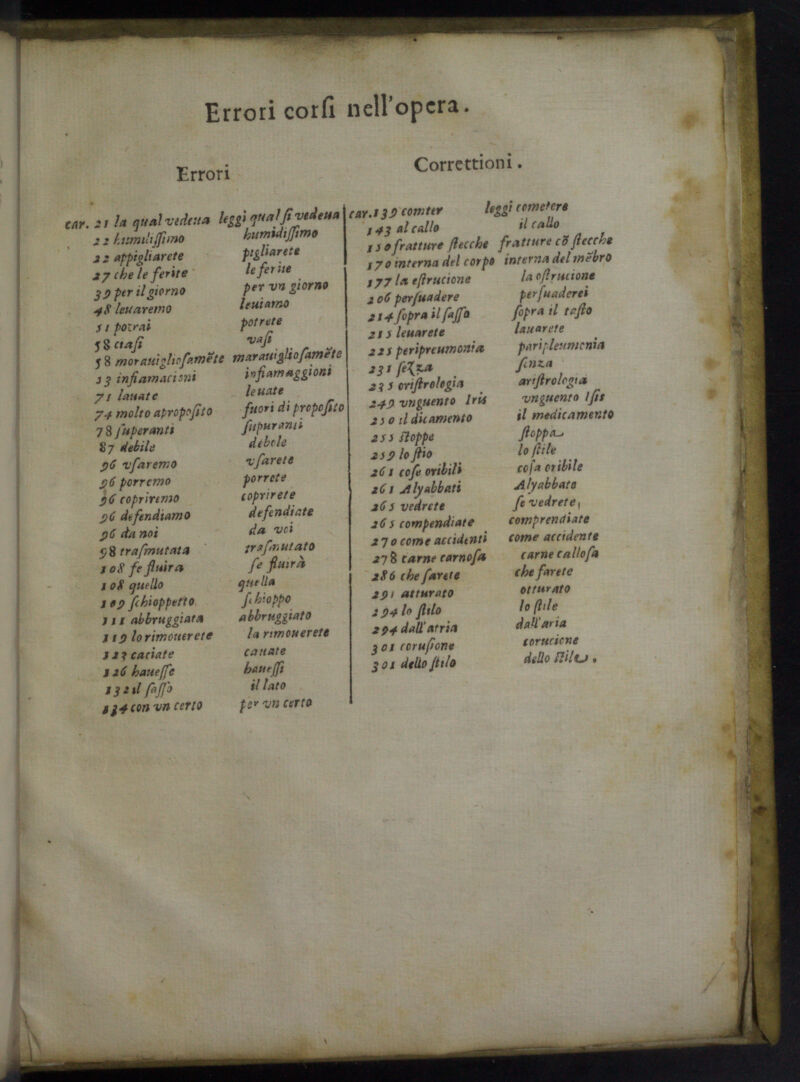 Errori corſi nell'opera.
Errori Correttioni.
car. 21 la qual vedeua leggi qual ſi vedeua
22 humiliſſimo humidiſſimo
22 appigliarete pigliarete
27 che le ferite le ferite
39 per il giorno per vn giorno
48 leuaremo leuiamo
51 potrai potrete
58 ctaſi vaſi
58 morauiglioſamẽte marauiglioſamẽte
33 infiamacioni infiammaggioni
71 lauate leuate
74 molto apropoſito fuori di propoſito
78 ſuperanti ſupuranti
87 debile debole
96 vſaremo vſarete
96 porremo porrete
96 copriremo coprirete
96 defendiamo defendiate
96 da noi da voi
98 traſmutata traſmutato
108 fe fluira ſe fluirà
108 quello quella
109 ſchioppetto ſchioppo
111 abbruggiata abbruggiato
119 lo rimouerete la rimouerete
123 caciate cauate
126 haueſſe haueſſi
132 il ſaſſo il lato
134 con vn certo per vn certo
car. 139 comter leggi cometere
143 al callo il callo
150 fratture ſlecche fratture cõ ſlecche
170 interna del corpo interna del mẽbro
177 la eſtrucione la oſtrucione
206 perſuadere perſuaderei
214 ſopra il ſaſſo ſopra il taſto
215 leuarete lauarete
225 peripreumonia paripleumonia
231 feZza ſinza
235 oriſtrologia ariſtrologia
249 vnguento Iris vnguento Iſis
250 il dicamento il medicamento
255 ſtoppe ſtoppa
259 lo ſtio lo ſtile
261 coſe oribili coſa oribile
261 Alyabbati Alyabbate
265 vedrete ſe vedrete,
265 compendiate comprendiate
270 come accidenti come accidente
278 carne carnoſa carne calloſa
286 che ſarete che farete
291 atturato otturato
294 lo ſtilo lo ſtile
294 dall'atria dall'aria
301 coruſione corucione
301 dello ſtilo dello ſtile.